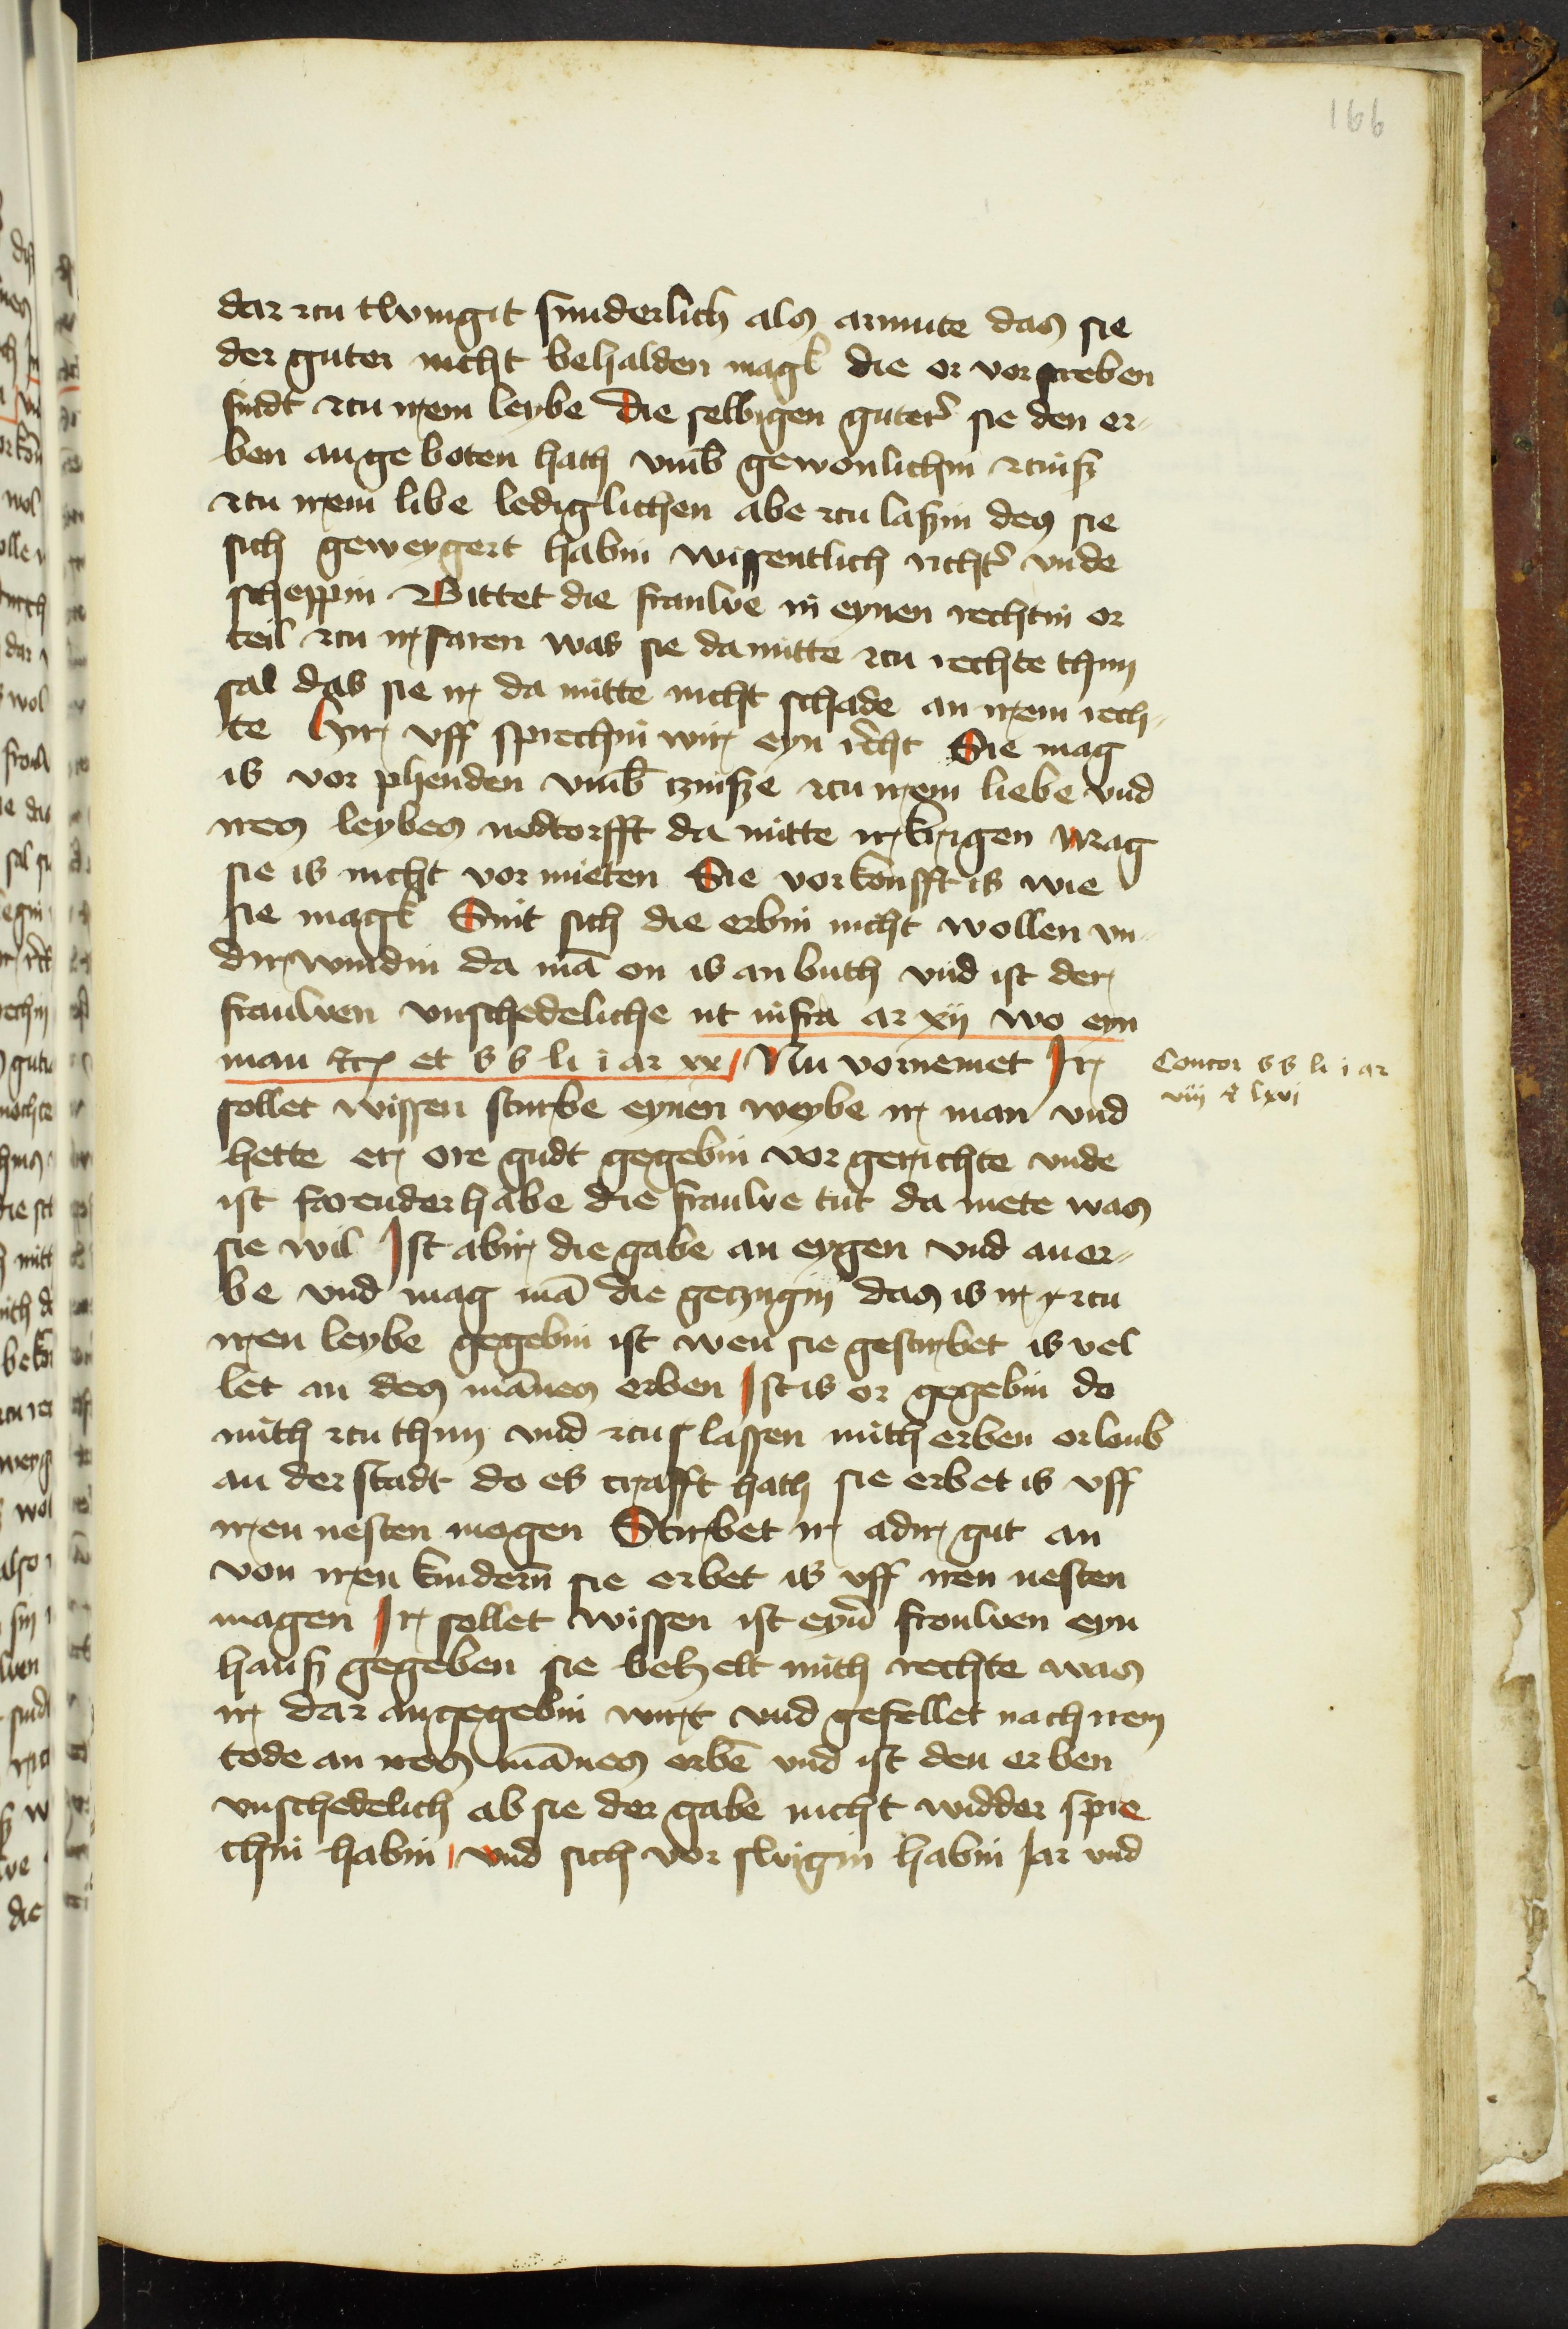 166
dar zcu twingit sunderlich als armute das sie
der guter nicht behalden magk die or vorscreben
sindt zcu irem leybe Die selbigen guter sie den er-
ben ange boten hath vmb gewonlichin zcinsz
zcu irem libe lediglichen abe zcu laszin des sie
sich geweygert habin wissentlich richter vnde
scheppin Bittet die frauwe in eynen rechtin or
teil zcu irfaren was sie da mitte zcu rechte thun
sal das sie ir da mitte nicht schade an irem rech-
te Hir uff sprechin wir eyn recht Sie mag
is vor phenden vmb czinsze zcu irem liebe vnd
ires leybes nodtorfft da mitte irkrigen Mag
sie is nicht vor mieten Sie vorkoufft is wie
sie magk Sint sich die erbin nicht wollen vn-
dirwindin da mā on is an buth vnd ist der
frauwen vnschedeliche ut infra ar xij wo eyn
man etc et s s li i ar xx Nu vornemet Ir
sollet wissen sturbe eynen weybe ir man vnd
hette er ore gudt gegebin vor gerichte vnde
ist farender habe die frauwe tut da mete was
sie wil Ist abir die gabe an eygen vnd an er-
be vnd mag mā die geczugin das is ir zcu
iren leybe gegebin ist wen sie gestirbet is vel
let an des mānes erben Ist is or gegebin do
mith zcu thun vnd zcu lassen mith erben orloub
an der stadt do es crafft hath sie erbet is uff
iren nesten mogen Stirbet ir adir gut an
von iren kindern sie erbet is uff iren nesten
magen Ir sollet wissen ist eyner frouwen eyn
hausz gegeben sie behelt mith rechte was
ir dar an gegebin wirt vnd gefellet nach irem
tode an ires mānes erbē vnd ist den erben
vnschedelich ab sie der gabe nicht widder spre
chin habin vnd sich vor swigin habin Jar vnd
Concor s s li i ar
viij et lxvj